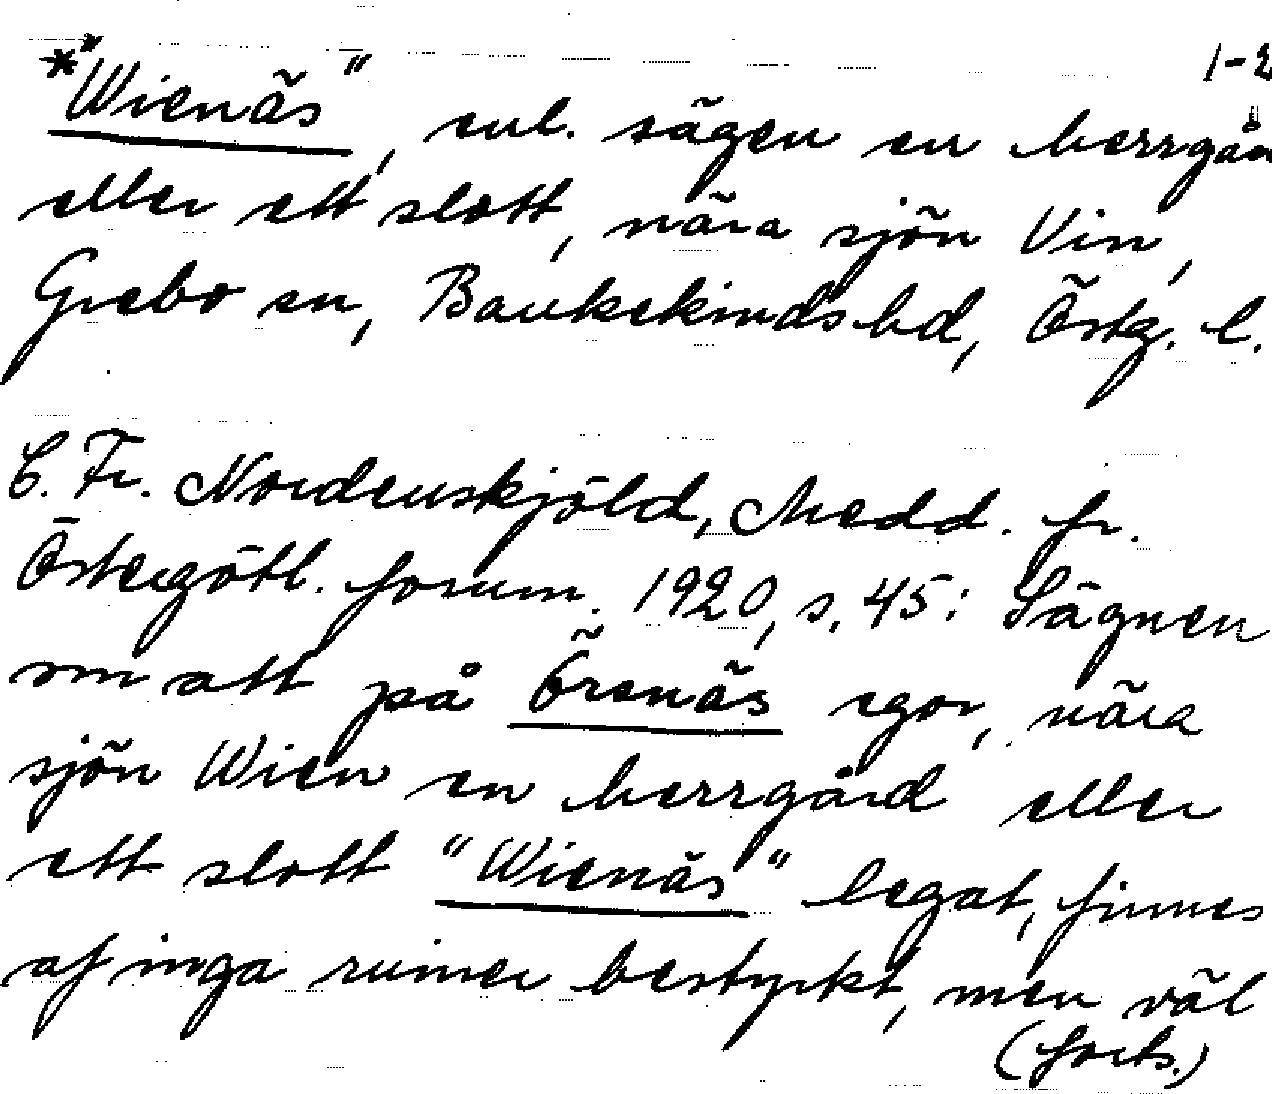 1-2
*"Wienäs", enl. sägen en herrgår
eller ett slott, nära sjön Vin,
Grebo sn, Bankekinds hd, Östg. l.
C. Fr. Nordenskjöld, Medd. fr.
Östergötl. fornm. 1920, s. 45: Sägnen
om att på Örenäs egor, nära
sjön Wien en herrgård eller
ett slott "Wienäs" legat, finnes
af inga ruiner bestyrkt, men väl
(forts.)